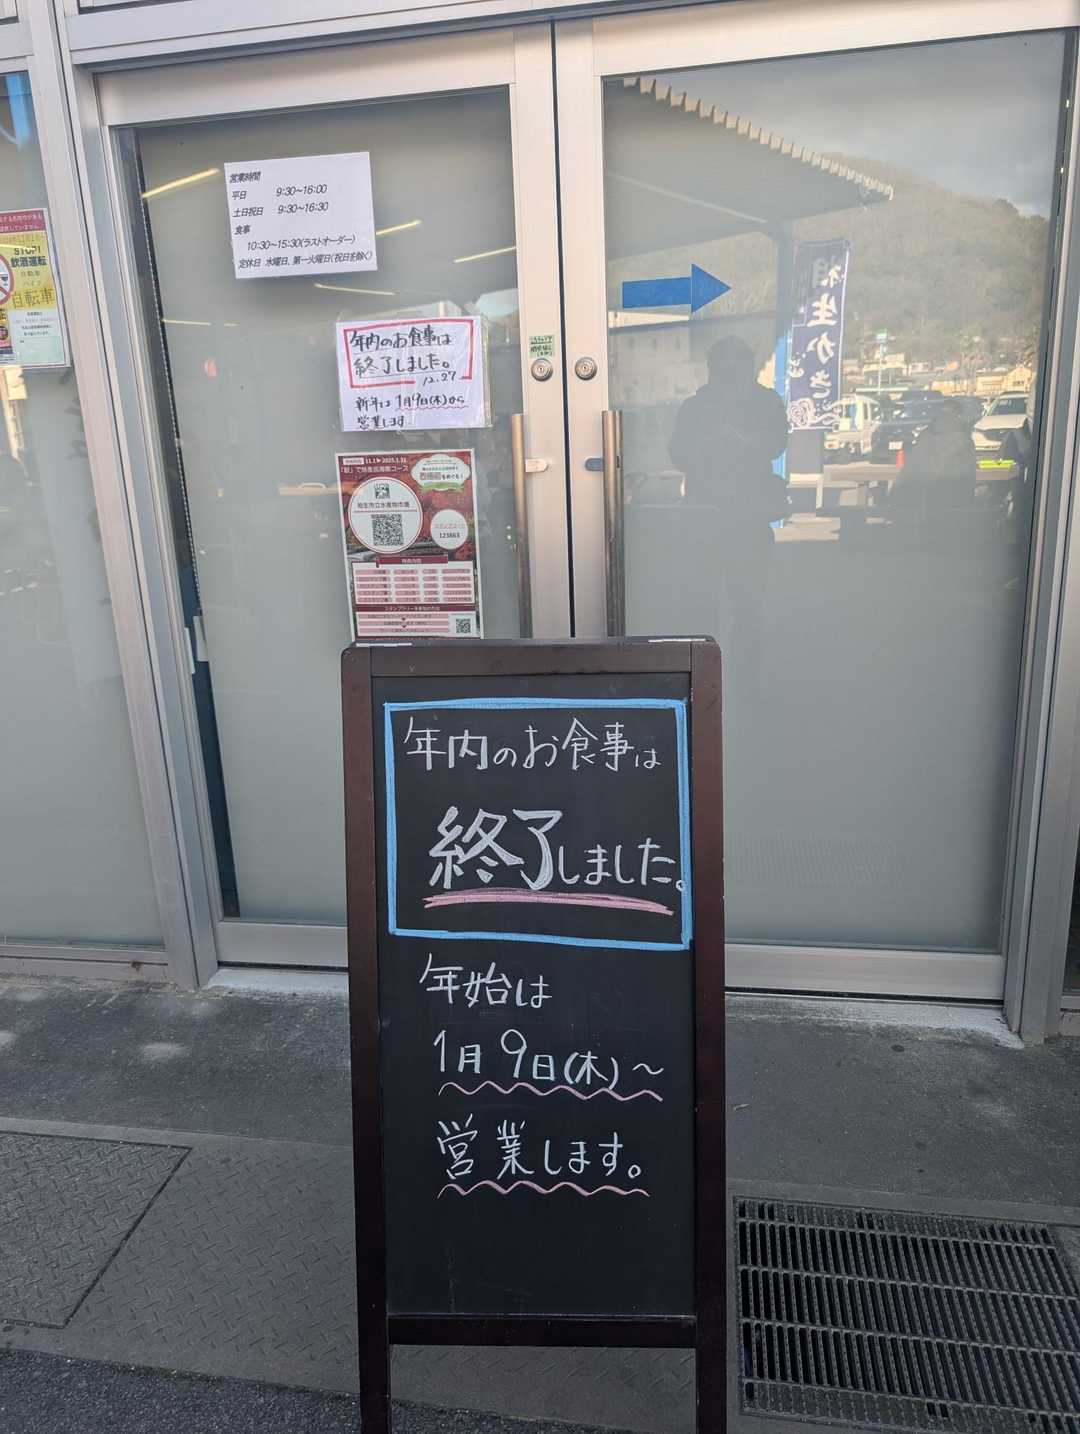 営業時間
平日 9:30~16:00
土日祝日 9:30~16:30
食事
10:30~15:30(ラストオーダー)
定休日 水曜日、第一火曜日(祝日を除く)
年内のお食事は
終了しました。
12.27
新年は1月9日(木)から
営業します
STOP!
飲酒運転
自動車
バイク
自転車
11.1▶2025.1.31
相生市立水産物市場
スタンプコード
123863
特典内容
相生かき
年内のお食事は
終了しました。
年始は
1月9日(木)~
営業します。